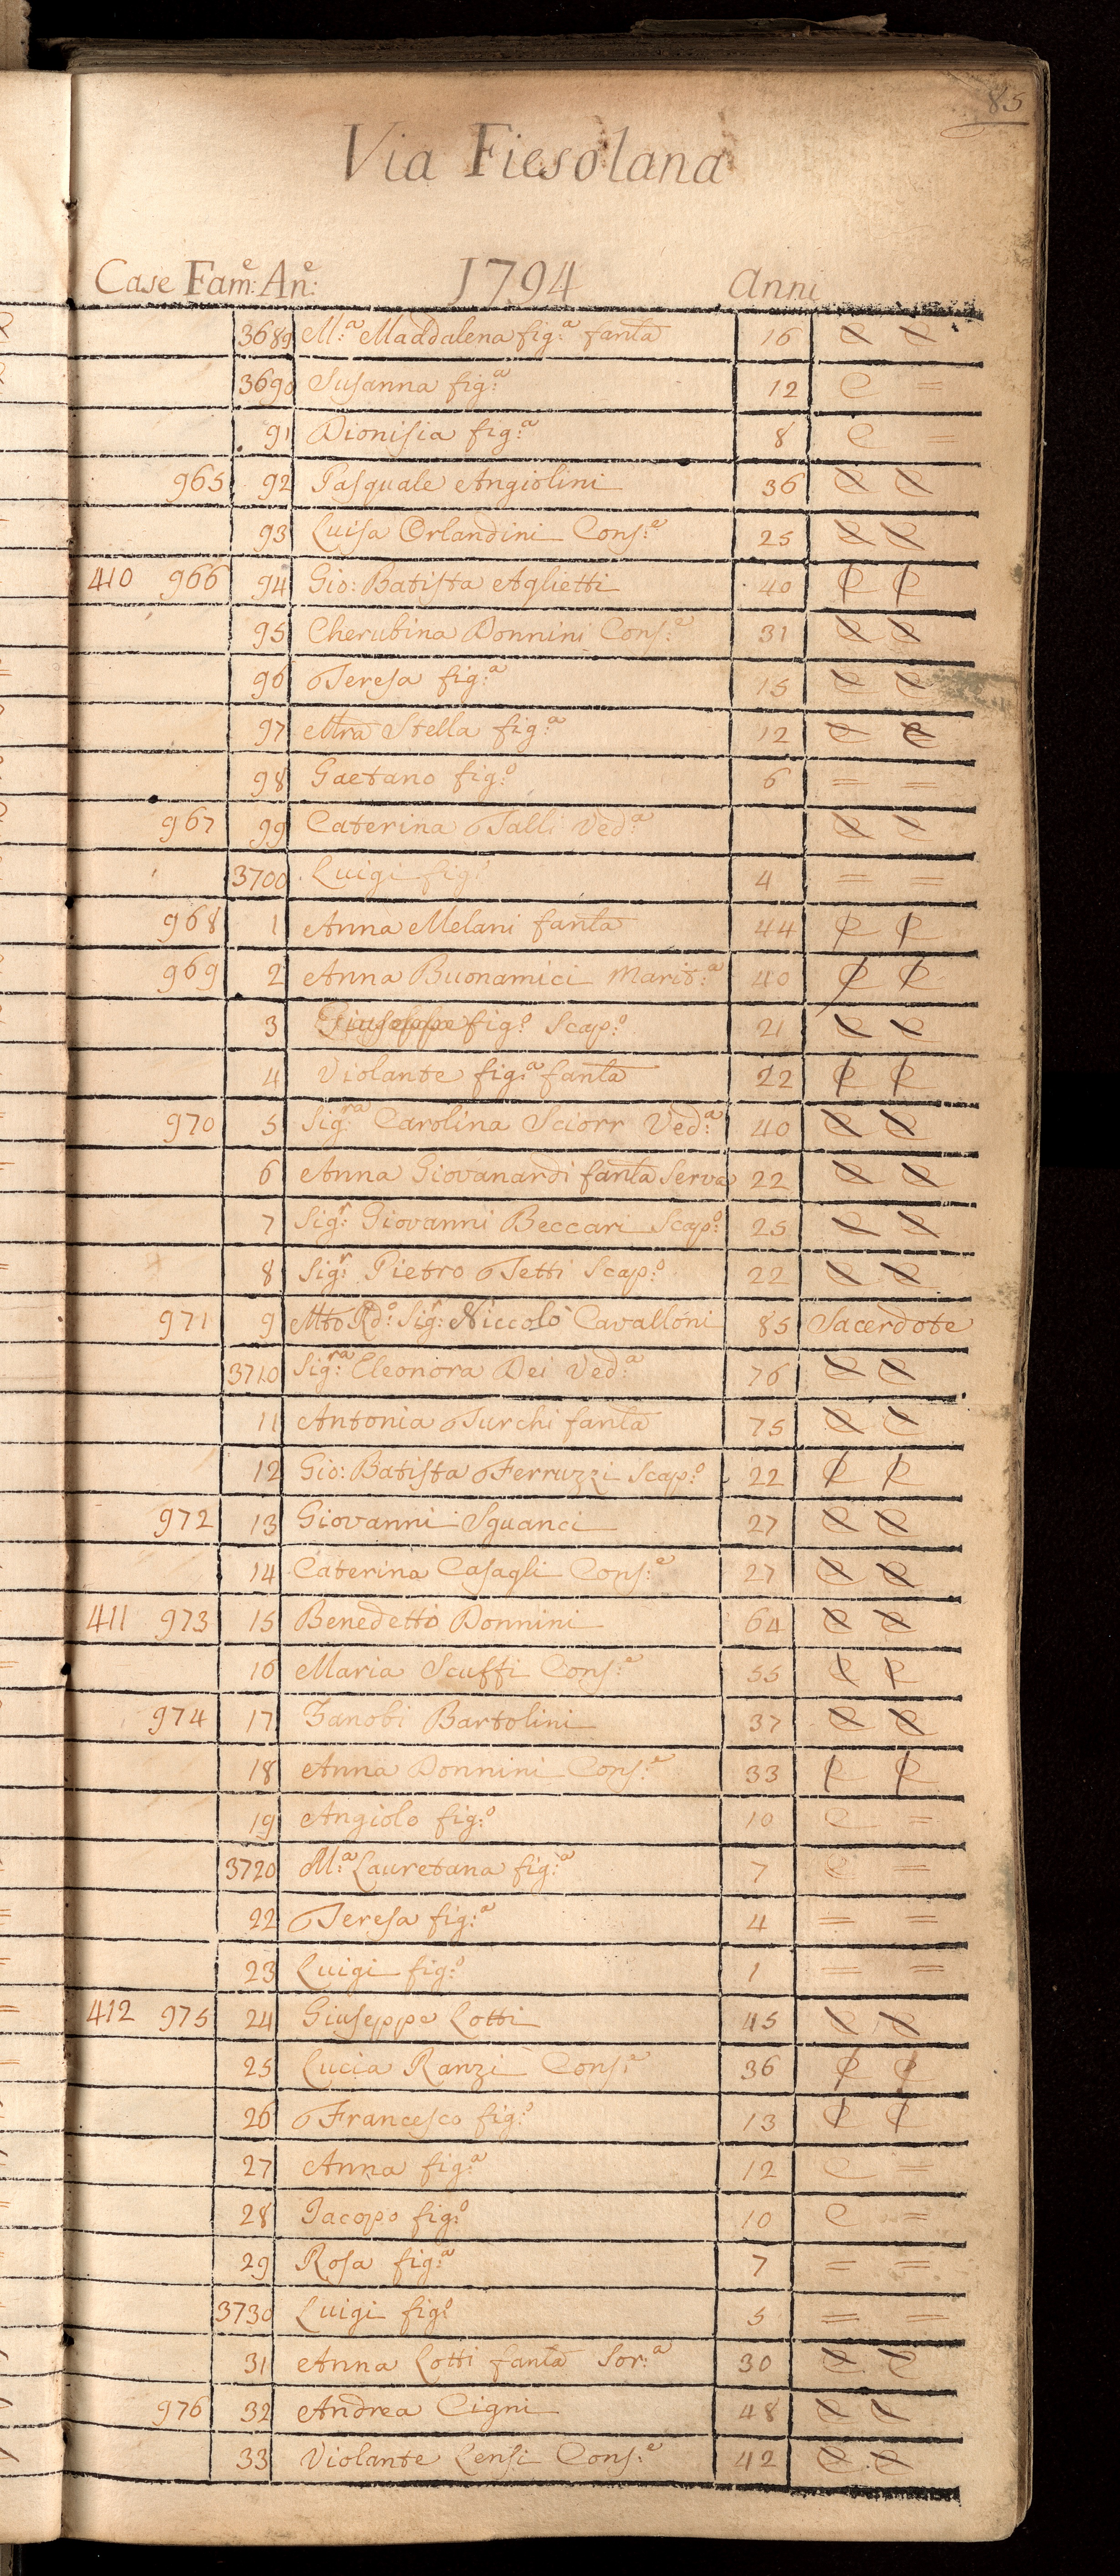 85
Via Fiesolana
Case Fam:e An:e 1794 Anni
3689 M:a Maddalena fig:a fanla 16 C C
3690 Susanna fig:a 12 C =
91 Dionisia fig:a 8 C =
965 92 Pasquale Angiolini 36 C C
93 Luisa Orlandini Cons:e 25 C C
410 966 94 Gio: Batista Aglietti 40 C C
95 Cherubina Donnini Cons:e 31 C C
96 Teresa fig:a 15 C C
97 Mra Stella fig:a 12 C C
98 Gaetano fig:o 6 = =
967 99 Caterina Talli Ved:a C C
3700 Luigi fig:o 4 = =
968 1 Anna Melani fanla 44 C C
969 2 Anna Buonamici Marit:a 40 C C
3 Giuseppe fig:o Scap:o 21 C C
4 Violante fig:a fanla 22 C C
970 5 Sig:ra Carolina Sciorr Ved:a 40 C C
6 Anna Giovanardi fanla Serva 22 C C
7 Sig:r Giovanni Beccari Scap:o 25 C C
8 Sig:r Pietro Tetti Scap:o 22 C C
971 9 Mto Rd:o Sig:r Niccolò Cavalloni 85 Sacerdote
3710 Sig:ra Eleonora Dei Ved:a 76 C C
11 Antonia Turchi fanla 75 C C
12 Gio: Batista Ferruzzi Scap:o 22 C C
972 13 Giovanni Sguanci 27 C C
14 Caterina Casagli Cons:e 27 C C
411 973 15 Benedetto Donnini 64 C C
16 Maria Scuffi Cons:e 55 C C
974 17 Zanobi Bartolini 37 C C
18 Anna Donnini Cons:e 33 C C
19 Angiolo fig:o 10 C =
3720 M:a Lauretana fig:a 7 C =
22 Teresa fig:a 4 = =
23 Luigi fig:o 1 = =
412 975 24 Giuseppe Lotti 45 C C
25 Lucia Ranzi Cons:e 36 C C
26 Francesco fig:o 13 C C
27 Anna fig:a 12 C =
28 Jacopo fig:o 10 C =
29 Rosa fig:a 7 = =
3730 Luigi fig:o 5 = =
31 Anna Lotti fanla Sor:a 30 C C
976 32 Andrea Cigni 48 C C
33 Violante Lensi Cons:e 42 C C